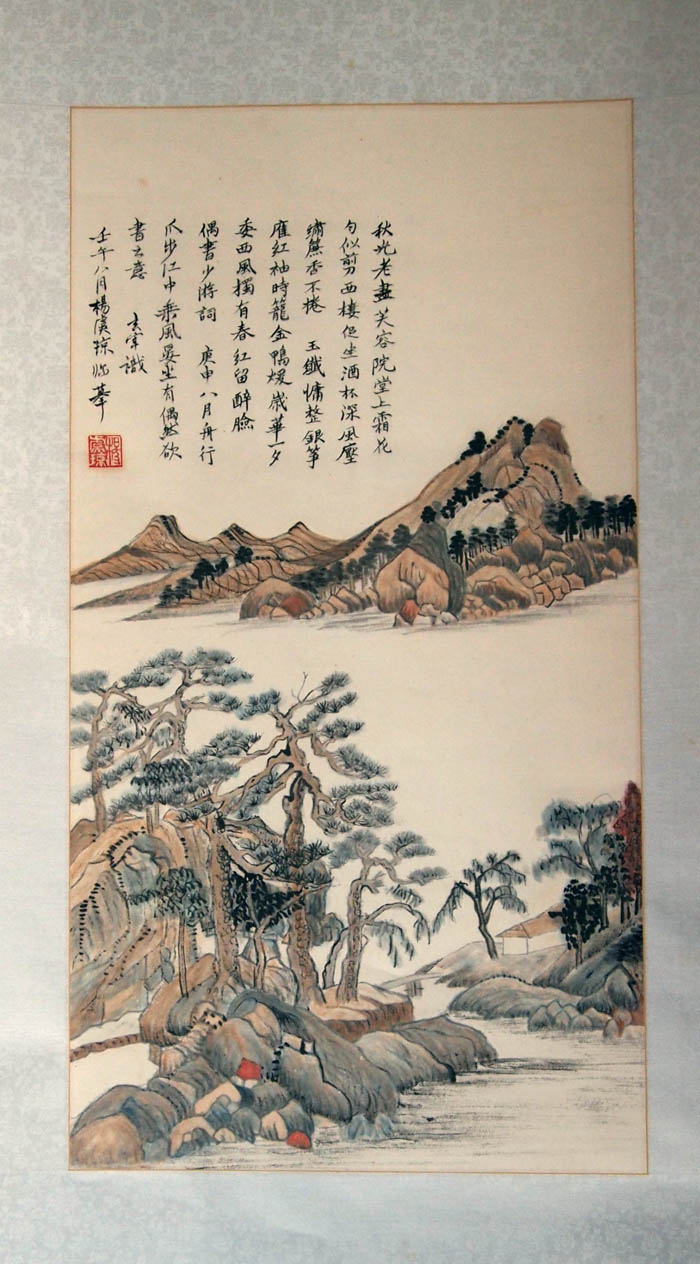 秋光老盡芙容院堂上霜花
勻似剪西樓促坐酒杯深風壓
繡簾香不捲 玉纖慵整銀箏
雁紅袖時籠金鴨煖歲華一夕
委西風獨有春紅留醉臉
偶書少游詞 庚申八月舟行
爪步江中乘風晏坐有偶然欲
書之意 玄宰識
壬午八月楊虞琼臨摹